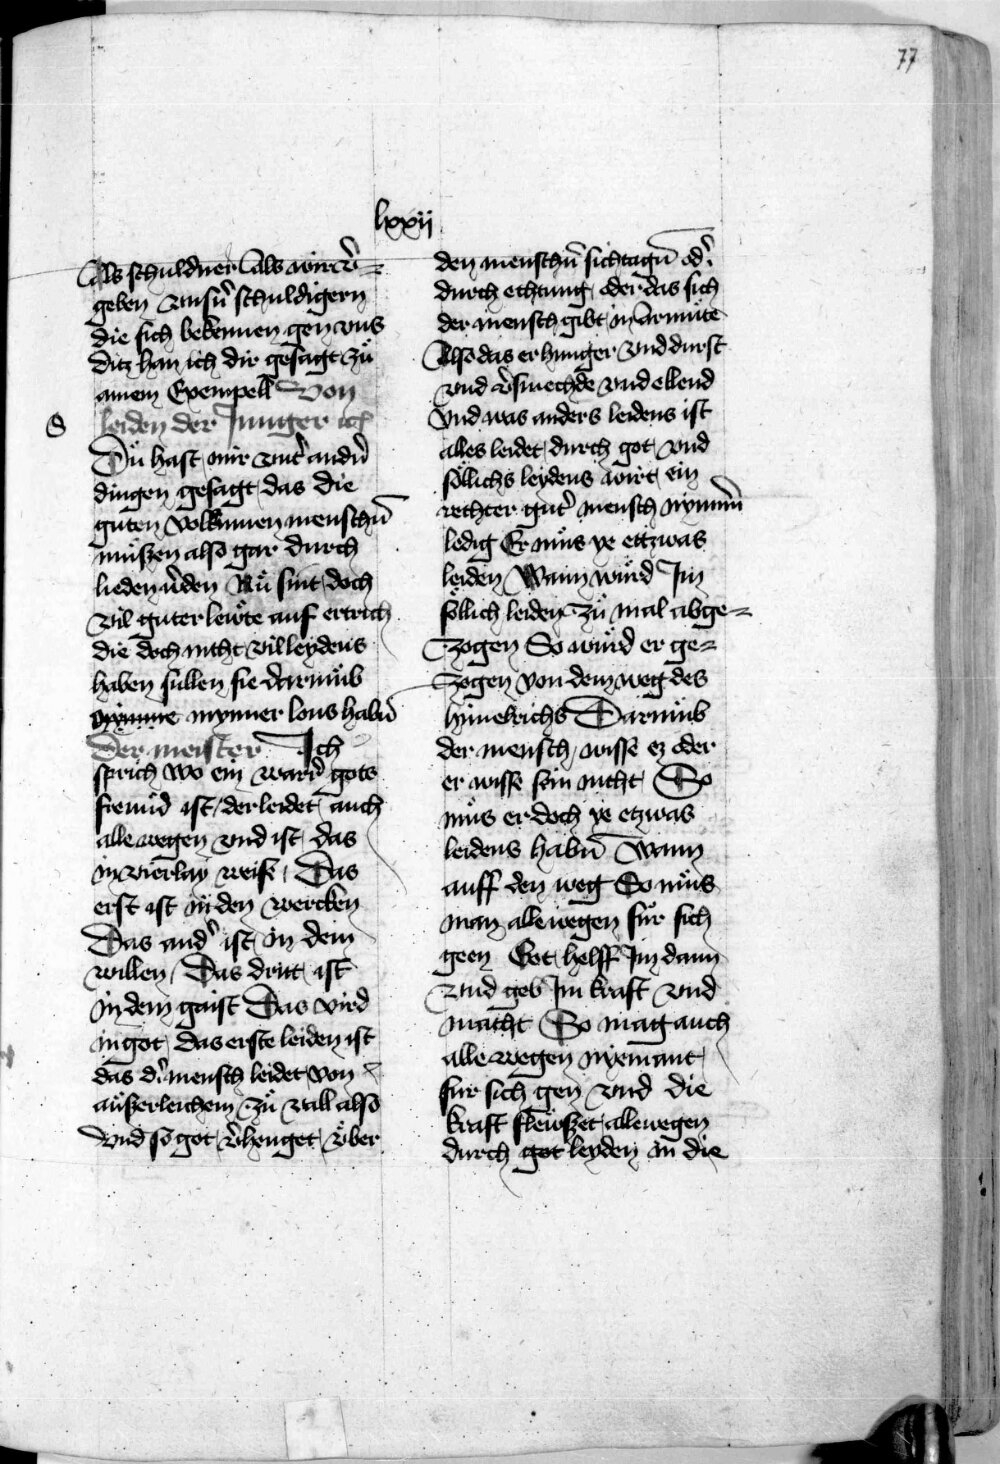 77
lxxij
Als schuldner Als wir v̄
geben vnsn̄ schuldigern
die sich bekennen gen vns
ditz han ich dir gesagt zů
ainem Exempell Von
leiden der Junger ich
S
Dů hast mir vnt̄ andn̄
dingen gesagt das die
guten volkumen menschn̄
můszen also gar durch
lieden w̄den Nů sint doch
vil guter lewte auf ertrich
die doch nicht vil leydens
haben sullen sie darmůb
mynner lons habn̄
Der meister Ich
sprich wo ein warr̄ gots
freund ist der leidet auch
alle wegen vnd ist das
in vierlay weise Das
erst ist in den wercken
Das and̄ ist in dem
willen Das dritt ist
in dem gaist Das vird
in got das erste leiden ist
das d̄ mensch leidet von
aüszerleichem zů vall also
vnd so got v̄henget über
den menschn̄ sichtagn̄ od̄
durch echtung oder das sich
der mensch gibt in armüte
Also das er hunger vnd durst
vnd v̄smechde vnd ellend
vnd was anders leidens ist
alles leidet durch got vnd
söllichs leydens wirt ein
rechter gut̄ mensch nymm̄
ledig Er můs ye ettzwas
leiden Wann würd Im
söllich leiden zů mal abge=
zogen So würd er ge=
zogen von dem weg des
himelrichs Darmůb
der mensch wisse ez oder
er wisse sein nicht So
můs er doch ye etzwas
leidens habn̄ Wann
auff den weg So můs
man allewegen für sich
geen Got helff Im dann
vnd geb Im kraft vnd
macht So mag auch
alle wegen nyemant
fur sich gen vnd die
kraft flewszet allewegen
durch got leyden in die